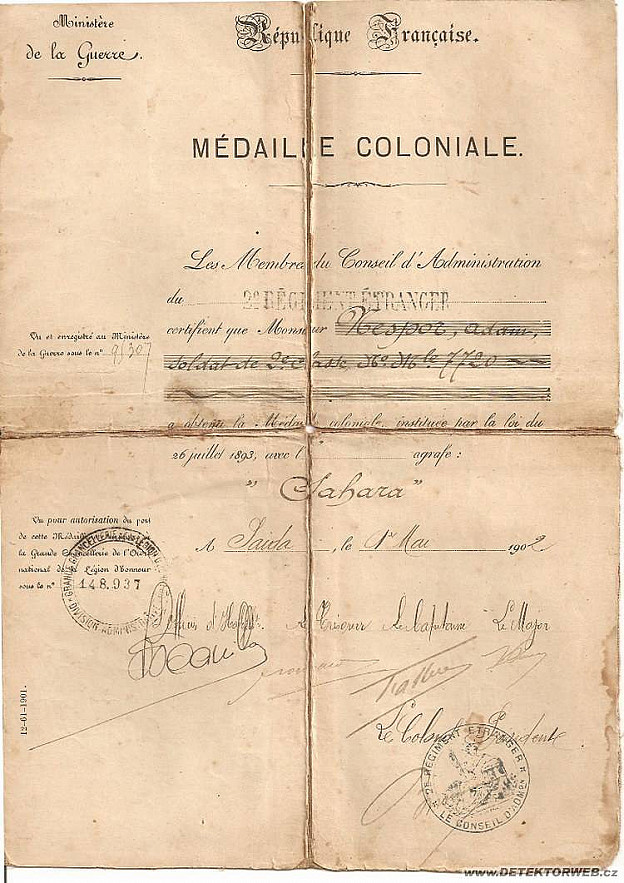 Ministère
de la Guerre.
République Française.
MÉDAILLE COLONIALE.
Les Membres du Conseil d'Administration
du 2e RÉGIMENT ÉTRANGER
certifient que Monsieur Nespor, Adam,
soldat de 2e classe, No Mle 7720
a obtenu la Médaille coloniale, instituée par la loi du
26 juillet 1893, avec l' agrafe :
" Sahara "
A Saïda, le 1er Mai 1902
Vu et enregistré au Ministère
de la Guerre sous le no 95307
Vu pour autorisation du port
de cette Médaille
la Grande Chancellerie de l'Ordre
national de la Légion d'honneur
sous le no 148.937
GRANDE CHANCELLERIE DE LA LÉGION D'
DIVISION ADMINISTRATIVE
d'Habillt. Le Trésorier Le Capitaine Le Major
Le Colonel Président
2E RÉGIMENT ETRANGER
LE CONSEIL D'ADMON
12-61-1901.
www.DETEKTORWEB.cz